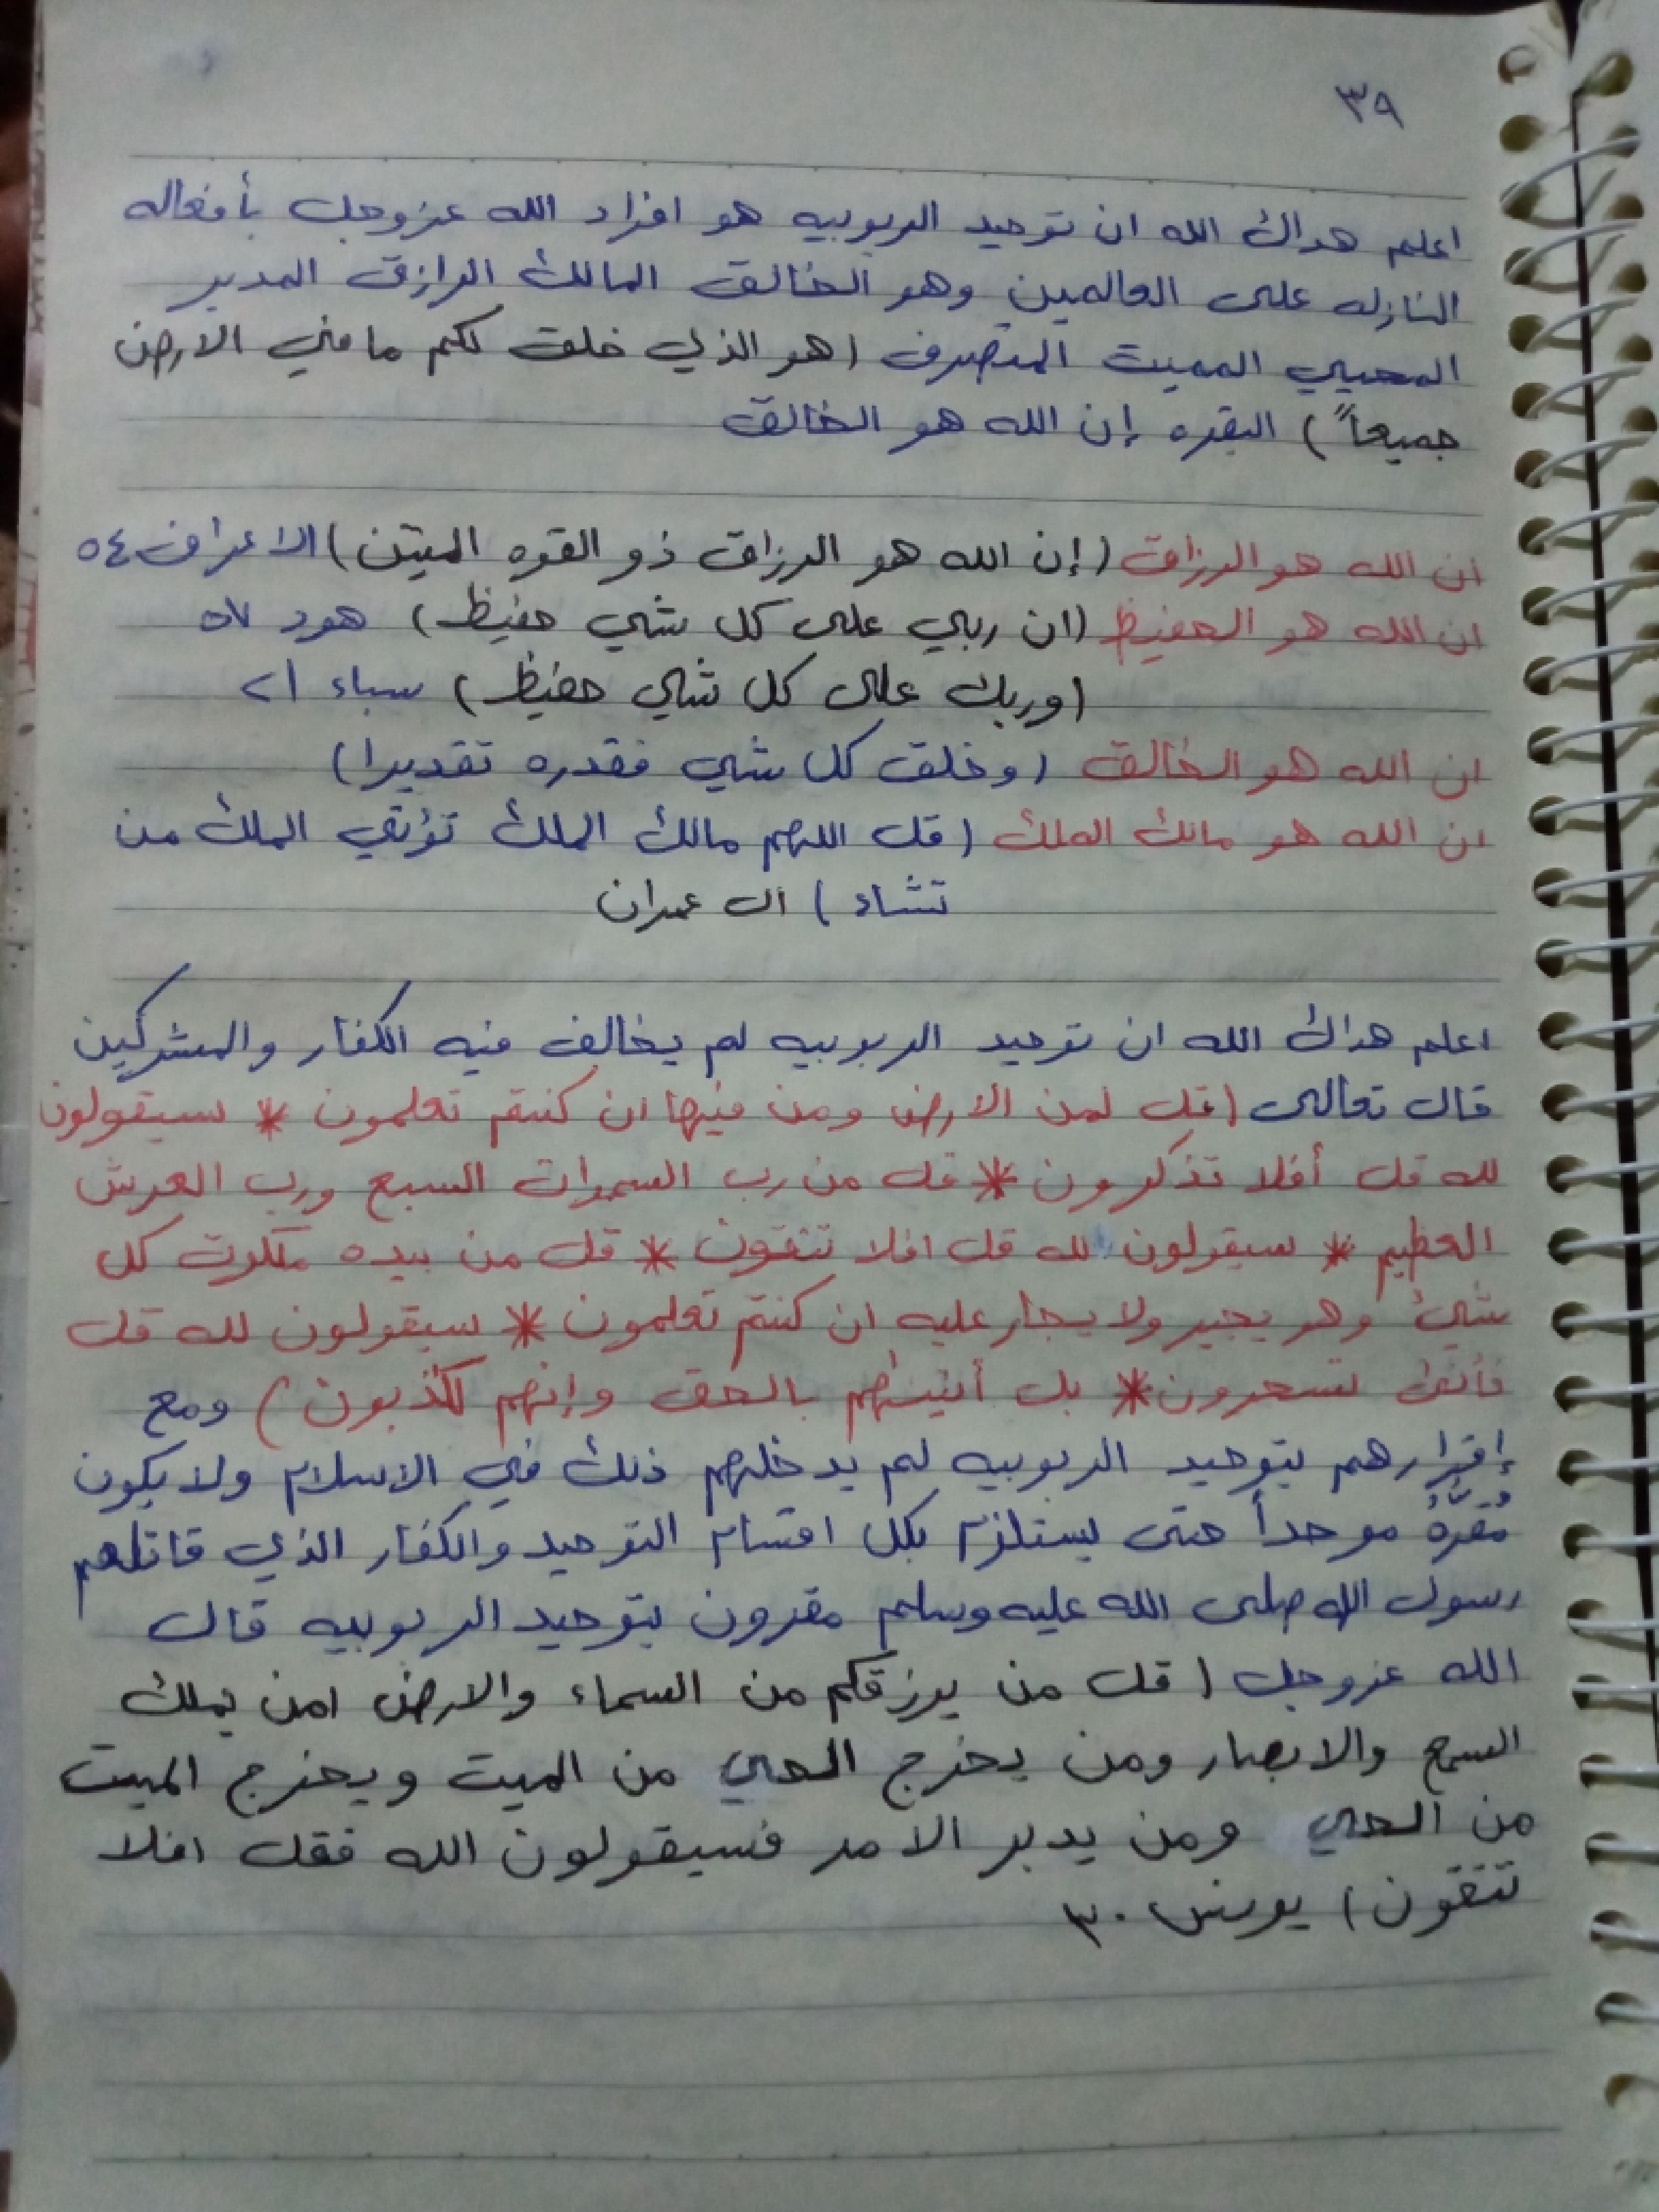 ٣٩
اعلم هداك الله ان توحيد الربوبيه هو افراد الله عزوجل بأفعاله
النازله على العالمين وهو الخالق المالك الرازق المدبر
المحيي المميت المتصرف (هو الذي خلق لكم ما في الارض
جميعاً) البقره إن الله هو الخالق
ان الله هو الرزاق (إن الله هو الرزاق ذو القوه المتين) الاعراف ٥٤
ان الله هو الحفيظ (ان ربي على كل شي حفيظ) هود ٥٧
(وربك على كل شي حفيظ) سباء ٢١
ان الله هو الخالق (وخلق كل شي فقدره تقديرا)
ان الله هو مالك الملك (قل اللهم مالك الملك تؤتي الملك من
تشاء) ال عمران
اعلم هداك الله ان توحيد الربوبيه لم يخالف فيه الكفار والمشركين
قال تعالى (قل لمن الأرض ومن فيها ان كنتم تعلمون * سيقولون
لله قل أفلا تذكرون * قل من رب السموات السبع ورب العرش
العظيم * سيقولون لله قل افلا تتقون * قل من بيده ملكوت كل
شيئ وهو يجير ولا يجار عليه ان كنتم تعلمون * سيقولون لله قل
فأنى تسحرون * بل أتينهم بالحق وإنهم لكذبون) ومع
إقرارهم بتوحيد الربوبيه لم يدخلهم ذلك في الاسلام ولا يكون
مُقرهُ موحداً حتى يستلزم بكل اقسام التوحيد والكفار الذي قاتلهم
رسول الله صلى الله عليه وسلم مقرون بتوحيد الربوبيه قال
الله عزوجل (قل من يرزقكم من السماء والارض امن يملك
السمع والابصار ومن يخرج الحي من الميت ويخرج الميت
من الحي ومن يدبر الامر فسيقولون الله فقل افلا
تتقون) يونس ٣٠